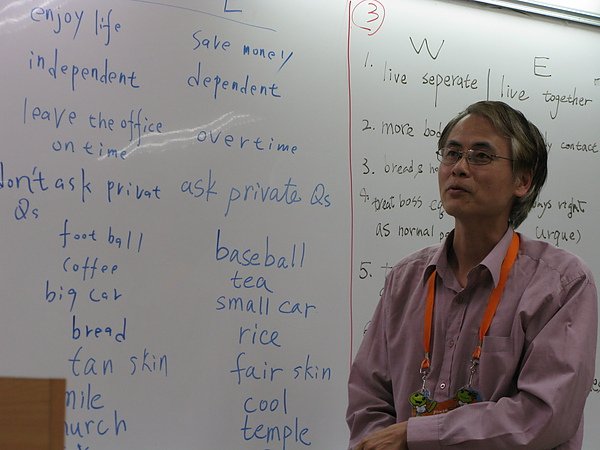 E
enjoy life save money
independent dependent
leave the office
on time overtime
don't ask privat ask private Qs
Qs
football baseball
coffee tea
big car small car
bread rice
tan skin fair skin
cool
temple
3
W E
1. live seperate live together
2. more contact
3. bread,
4. treat boss right
as normal urque)
5.